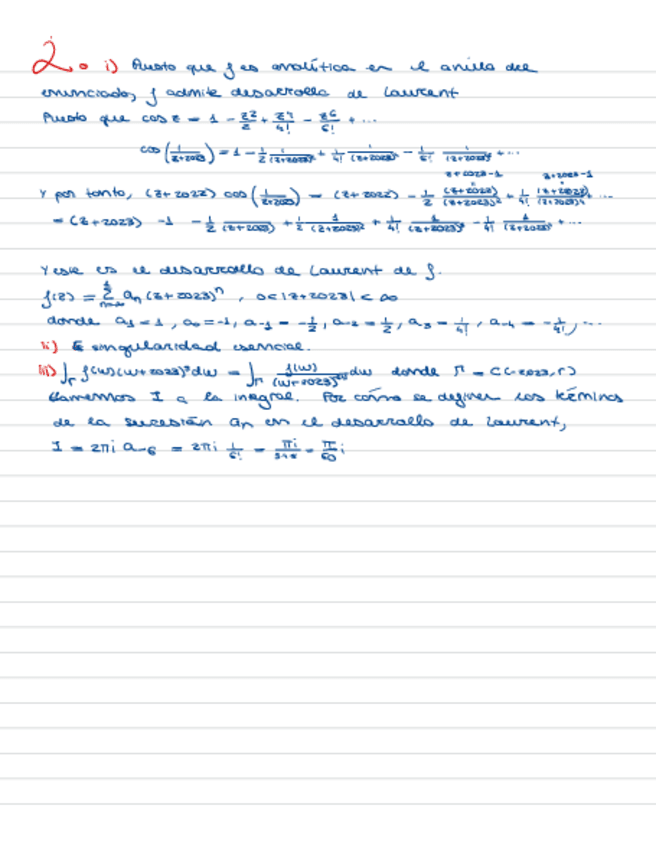 2. i) Puesto que f es analítica en el anillo del
enunciado, f admite desarrollo de Laurent
Puesto que cos z = 1 - z²/2 + z⁴/4! - z⁶/6! + ...
cos(1/(z+2023)) = 1 - 1/2 1/(z+2023)² + 1/4! 1/(z+2023)⁴ - 1/6! 1/(z+2023)⁶ + ...
z+2023-1 z+2023-1
Y por tanto, (z+2022) cos(1/(z+2023)) = (z+2022) - 1/2 (z+2022)/(z+2023)² + 1/4! (z+2022)/(z+2023)⁴ ...
= (z+2023) -1 - 1/2 1/(z+2023) + 1/2 1/(z+2023)² + 1/4! 1/(z+2023)³ - 1/4! 1/(z+2023)⁴ + ...
Y este es el desarrollo de Laurent de f.
f(z) = Σ aₙ (z+2023)ⁿ , 0<|z+2023|<∞
donde a₁ = 1, a₀ = -1, a₋₁ = -1/2, a₋₂ = 1/2, a₋₃ = 1/4!, a₋₄ = -1/4!, ...
ii) singularidad esencial.
iii) ∫_Γ f(w)(w+2023)⁵ dw = ∫_Γ f(w)/(w+2023) dw donde Γ = C(-2023,r)
Llamemos I a la inegral. Por cómo se definen los términos
de la sucesión aₙ en el desarrollo de Laurent,
I = 2πi a₋₆ = 2πi 1/6! = πi/ = π/ i